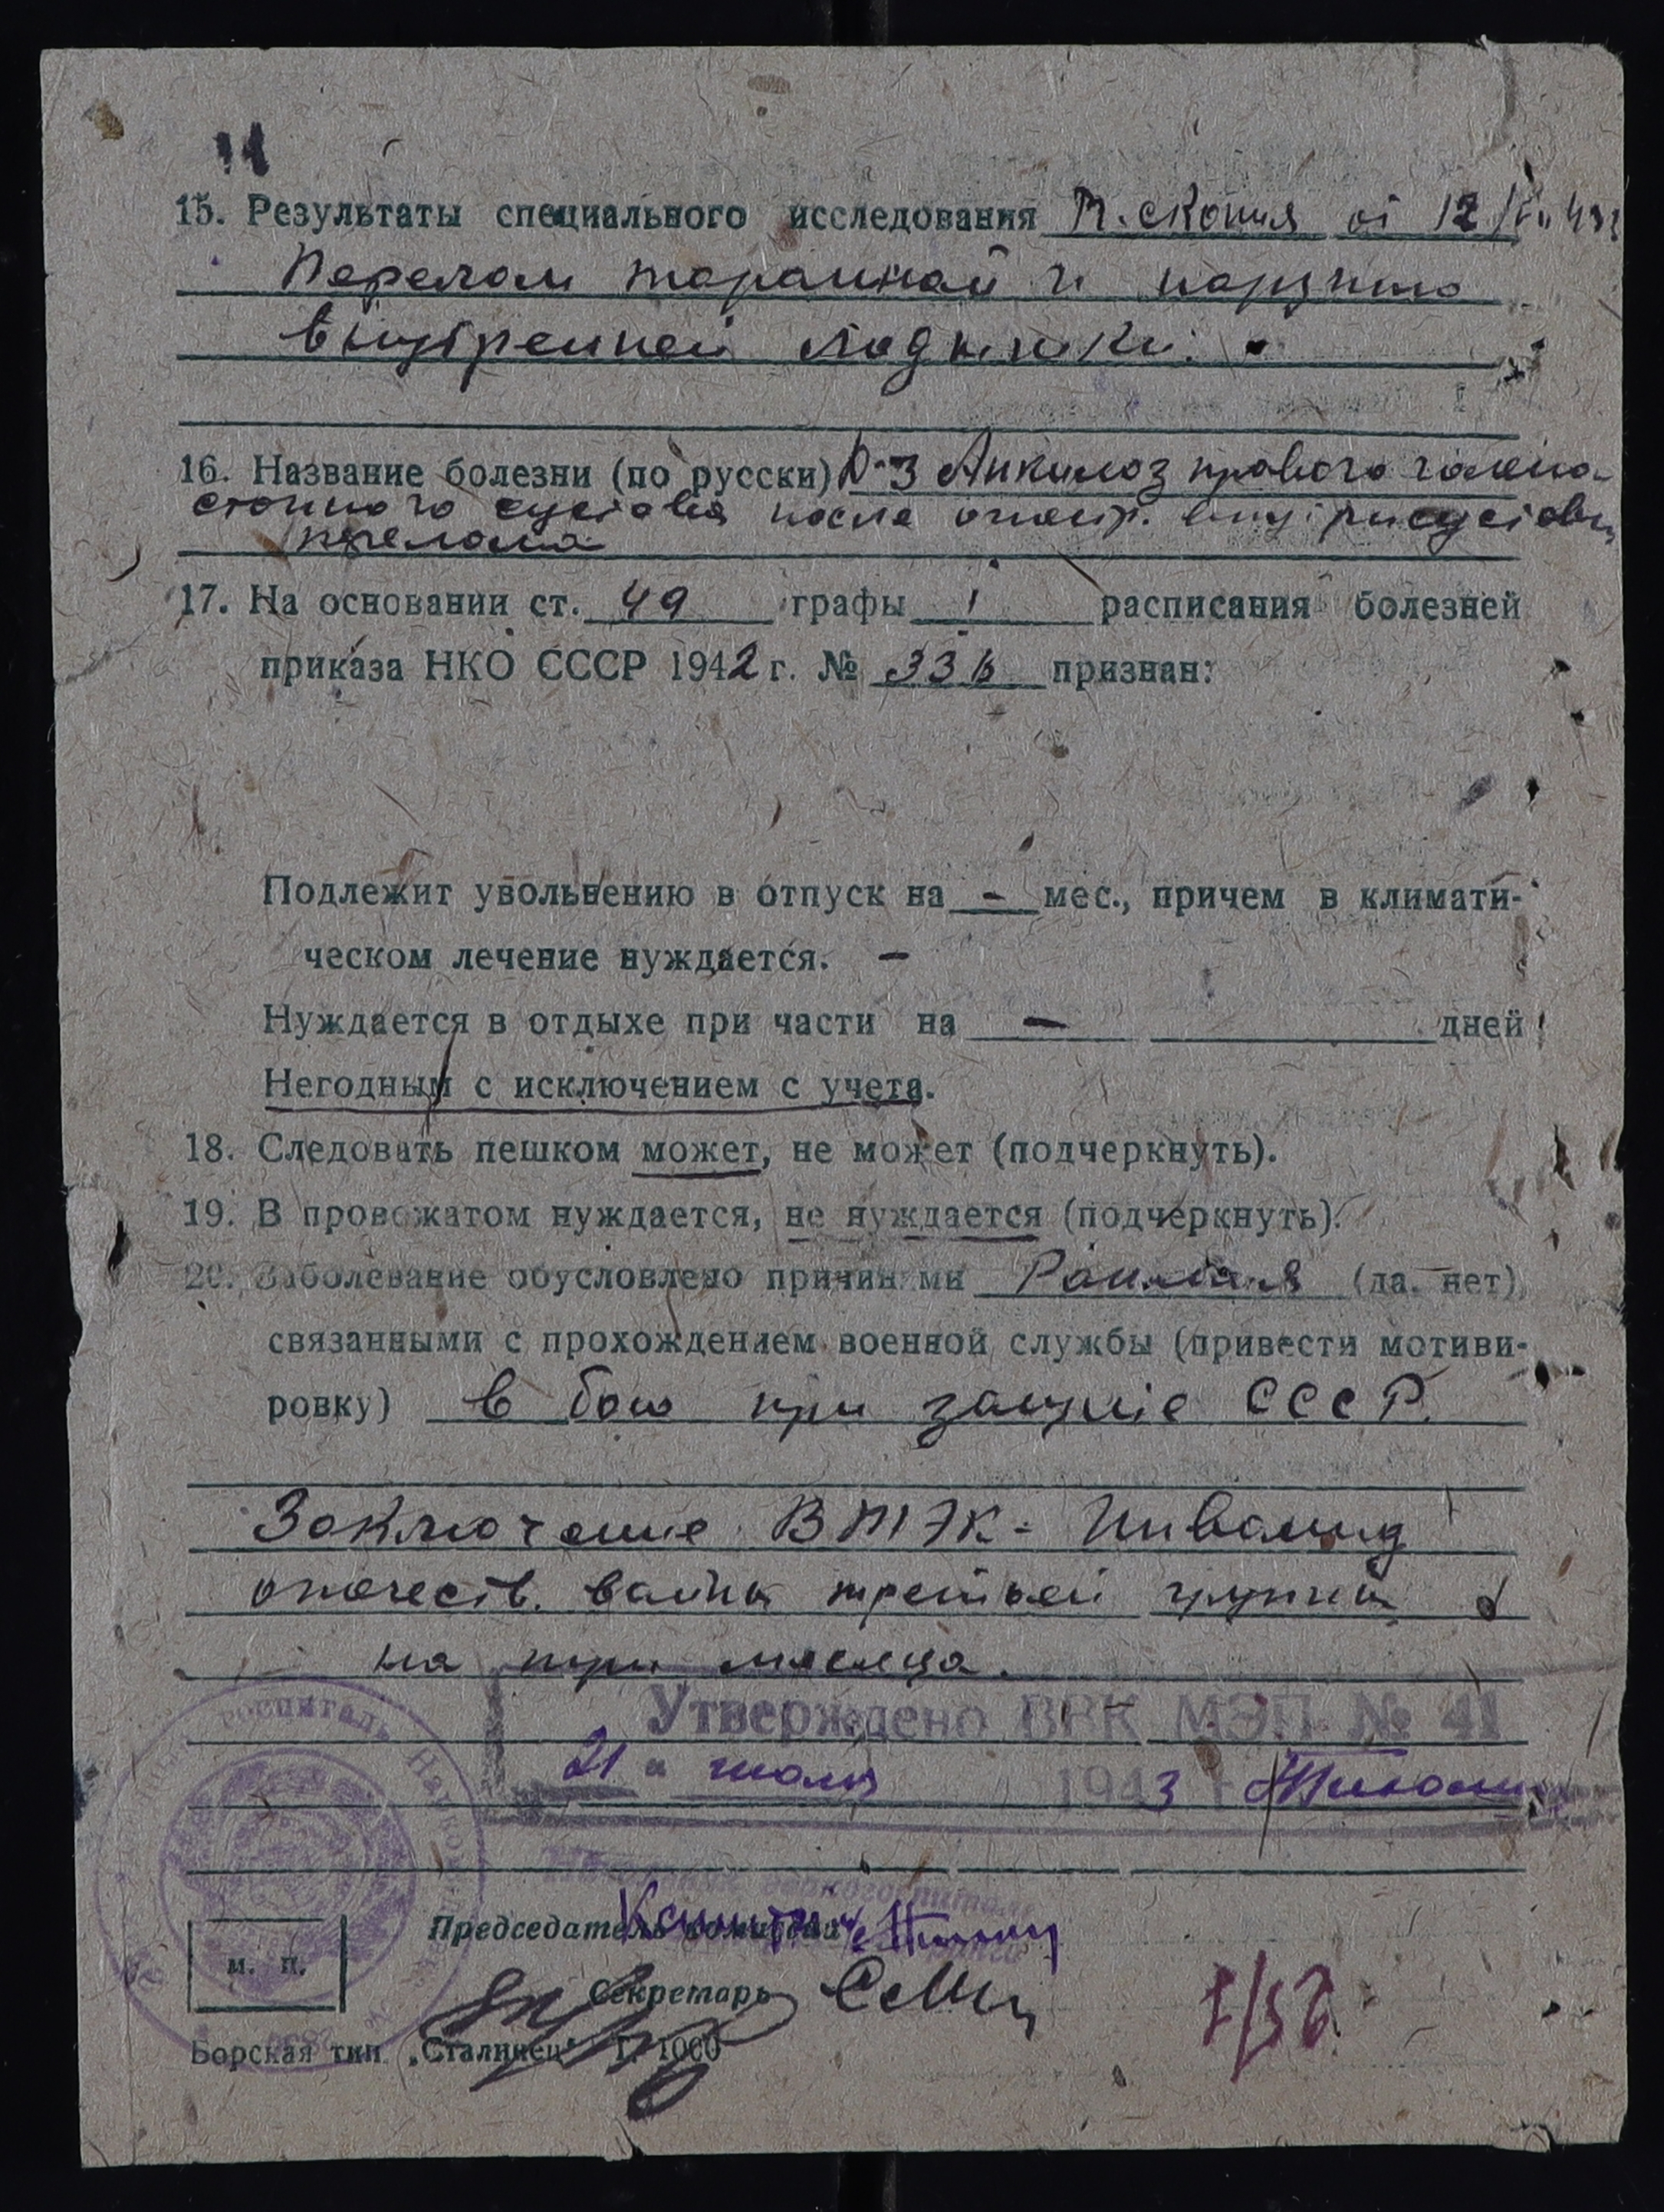 15. Результаты специального исследования R-скопия от 12/VII 43 г
Перелом таранной и наружно
внутренней лодыжки.
16. Название болезни (по русски) D-з Анкилоз правого голено-
стопного сустава после огнестр. внутрисуставн
перелома
17. На основании ст. 49 графы I расписания болезней
приказа НКО СССР 1942 г. № 336 признан:
Подлежит увольнению в отпуск на - мес., причем в климати-
ческом лечение нуждается. -
Нуждается в отдыхе при части на - дней
Негодным с исключением с учета.
18. Следовать пешком может, не может (подчеркнуть).
19. В провожатом нуждается, не нуждается (подчеркнуть).
20. Заболевание обусловлено причинами Ранения (да. нет)
связанными с прохождением военной службы (привести мотиви-
ровку) в бою при защите СССР.
Заключение ВТЭК - Инвалид
отечеств. войны третьей группы
на три месяца.
Утверждено ВВК МЭП № 41
21 " июля 1943
госпиталь
Председатель комиссии
м. п.
Секретарь
Борская тип „Сталинец" Т. 1000